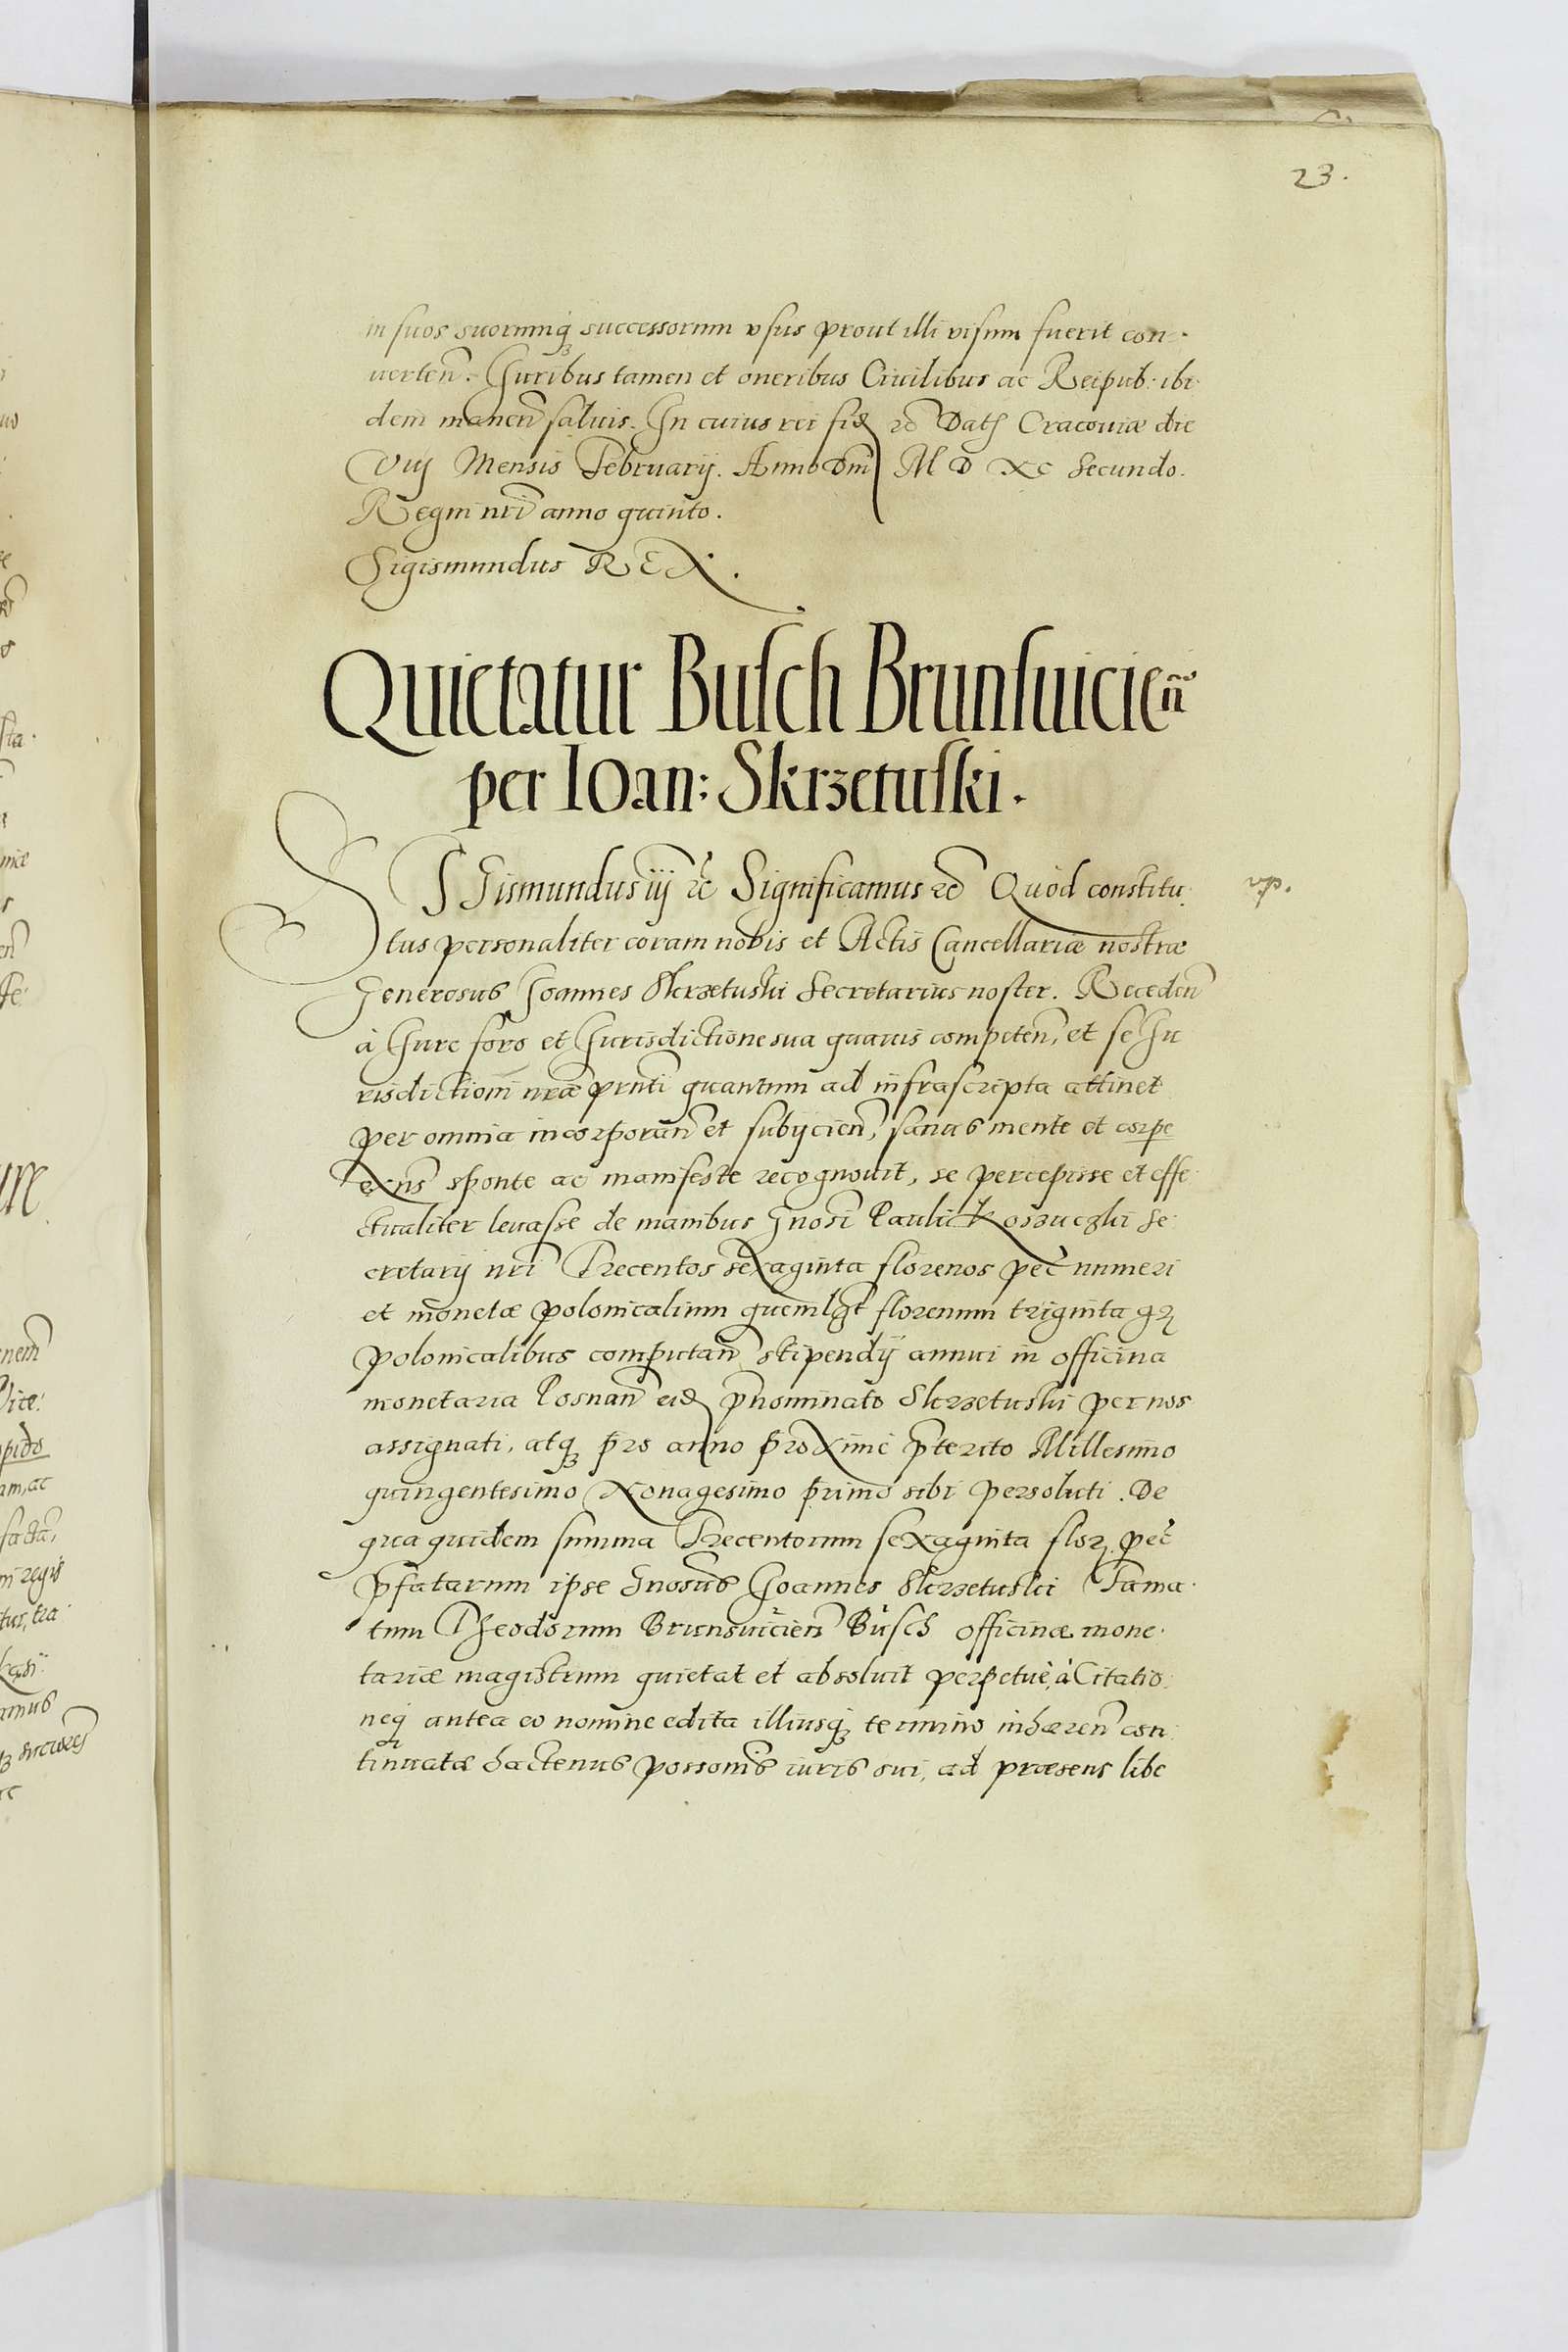 23.
in suos suorumq successorum vsus prout illi visum fuerit con-
uerten. Juribus tamen et oneribus Ciuilibus ac Reipub: ibi
dem manen saluis. In cuius rei fid ec Dat Cracouiæ die
Vij Mensis Februarij. Anno Dni M D XC Secundo.
Regni nri anno quinto.
Sigismundus REX.
Quietatur Busch Brunsuicien
per Ioan: Skrzetuski.
SIGismundus iij ec Significamus ec Quòd constitu
vp.
tus personaliter coram nobis et Actis Cancellariæ nostræ
Generosus Joannes Skrzetuski Secretarius noster. Receden
à Jure foro et Jurisdictione sua quauis competen, et se Ju
risdictioni nræ pnti quantum ad infrascripta attinet
per omnia incorporan et subijcien, sanus mente et corpe
exns sponte ac manifeste recognouit, se percepisse et effe
ctualiter leuasse de manibus Gnosi Pauli Koszuczki Se
cretarij nri Trecentos sexaginta florenos pec numeri
et monetæ polonicalium quemlbt florenum triginta gr
polonicalibus computan stipendij annui in officina
monetaria Posnan eid pnominato Skrzetuski per nos
assignati, atq pro anno proxime pterito Millesimo
quingentesimo Nonagesimo primo sibi persoluti. De
qua quidem summa Trecentorum sexaginta flor pec
pfatarum ipse Gnosus Joannes Skrzetuski Fama
tum Theodorum Brunsuicien Busch officinæ mone
tariæ magistrum quietat et absoluit perpetuè, à Citatio
neq antea eo nomine edita illiusq termino inhæren con
tinuatæ hactenus possonis iuris sui, ad præsens libe